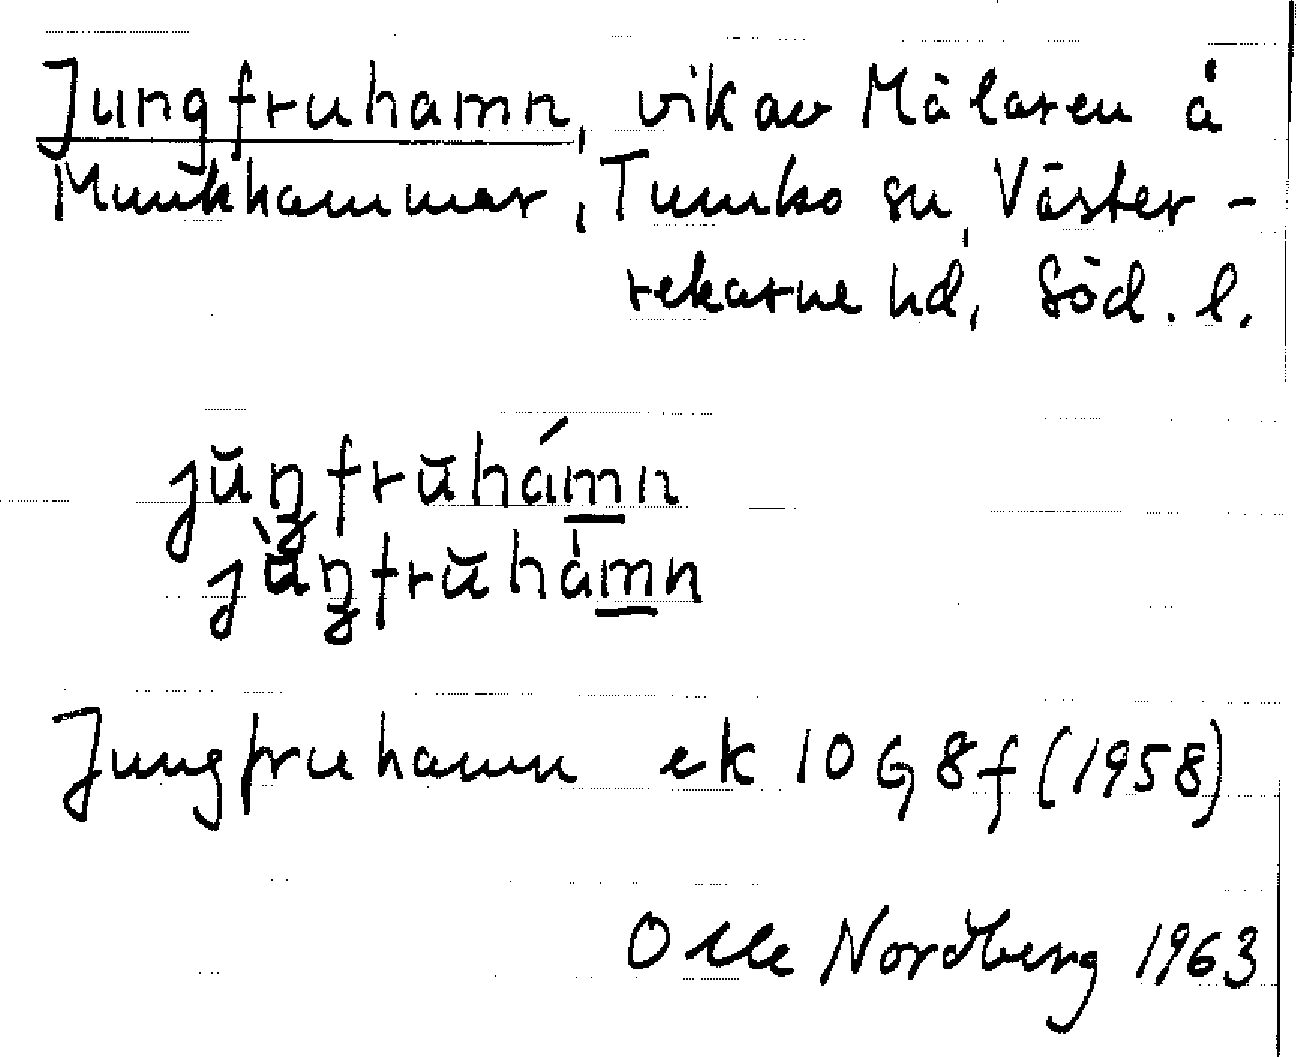 Jungfruhamn, vik av Mälaren å
Munkhammar, Tumbo sn, Väster-
rekarne hd, Söd. l.
jŭŋfrŭhámn
jùŋfrŭhàmn
Jungfruhamn ek 10 G 8f (1958)
Olle Nordberg 1963